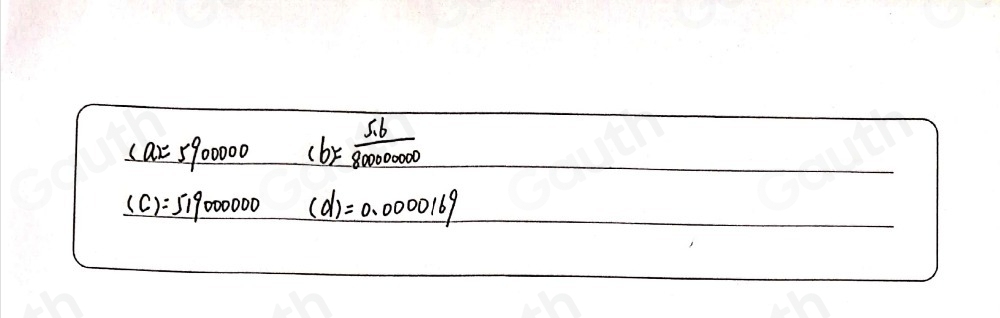 (a)= 5900000 (b)= 5.6/800000000
(c)=519000000 (d)=0.0000169
Gauth